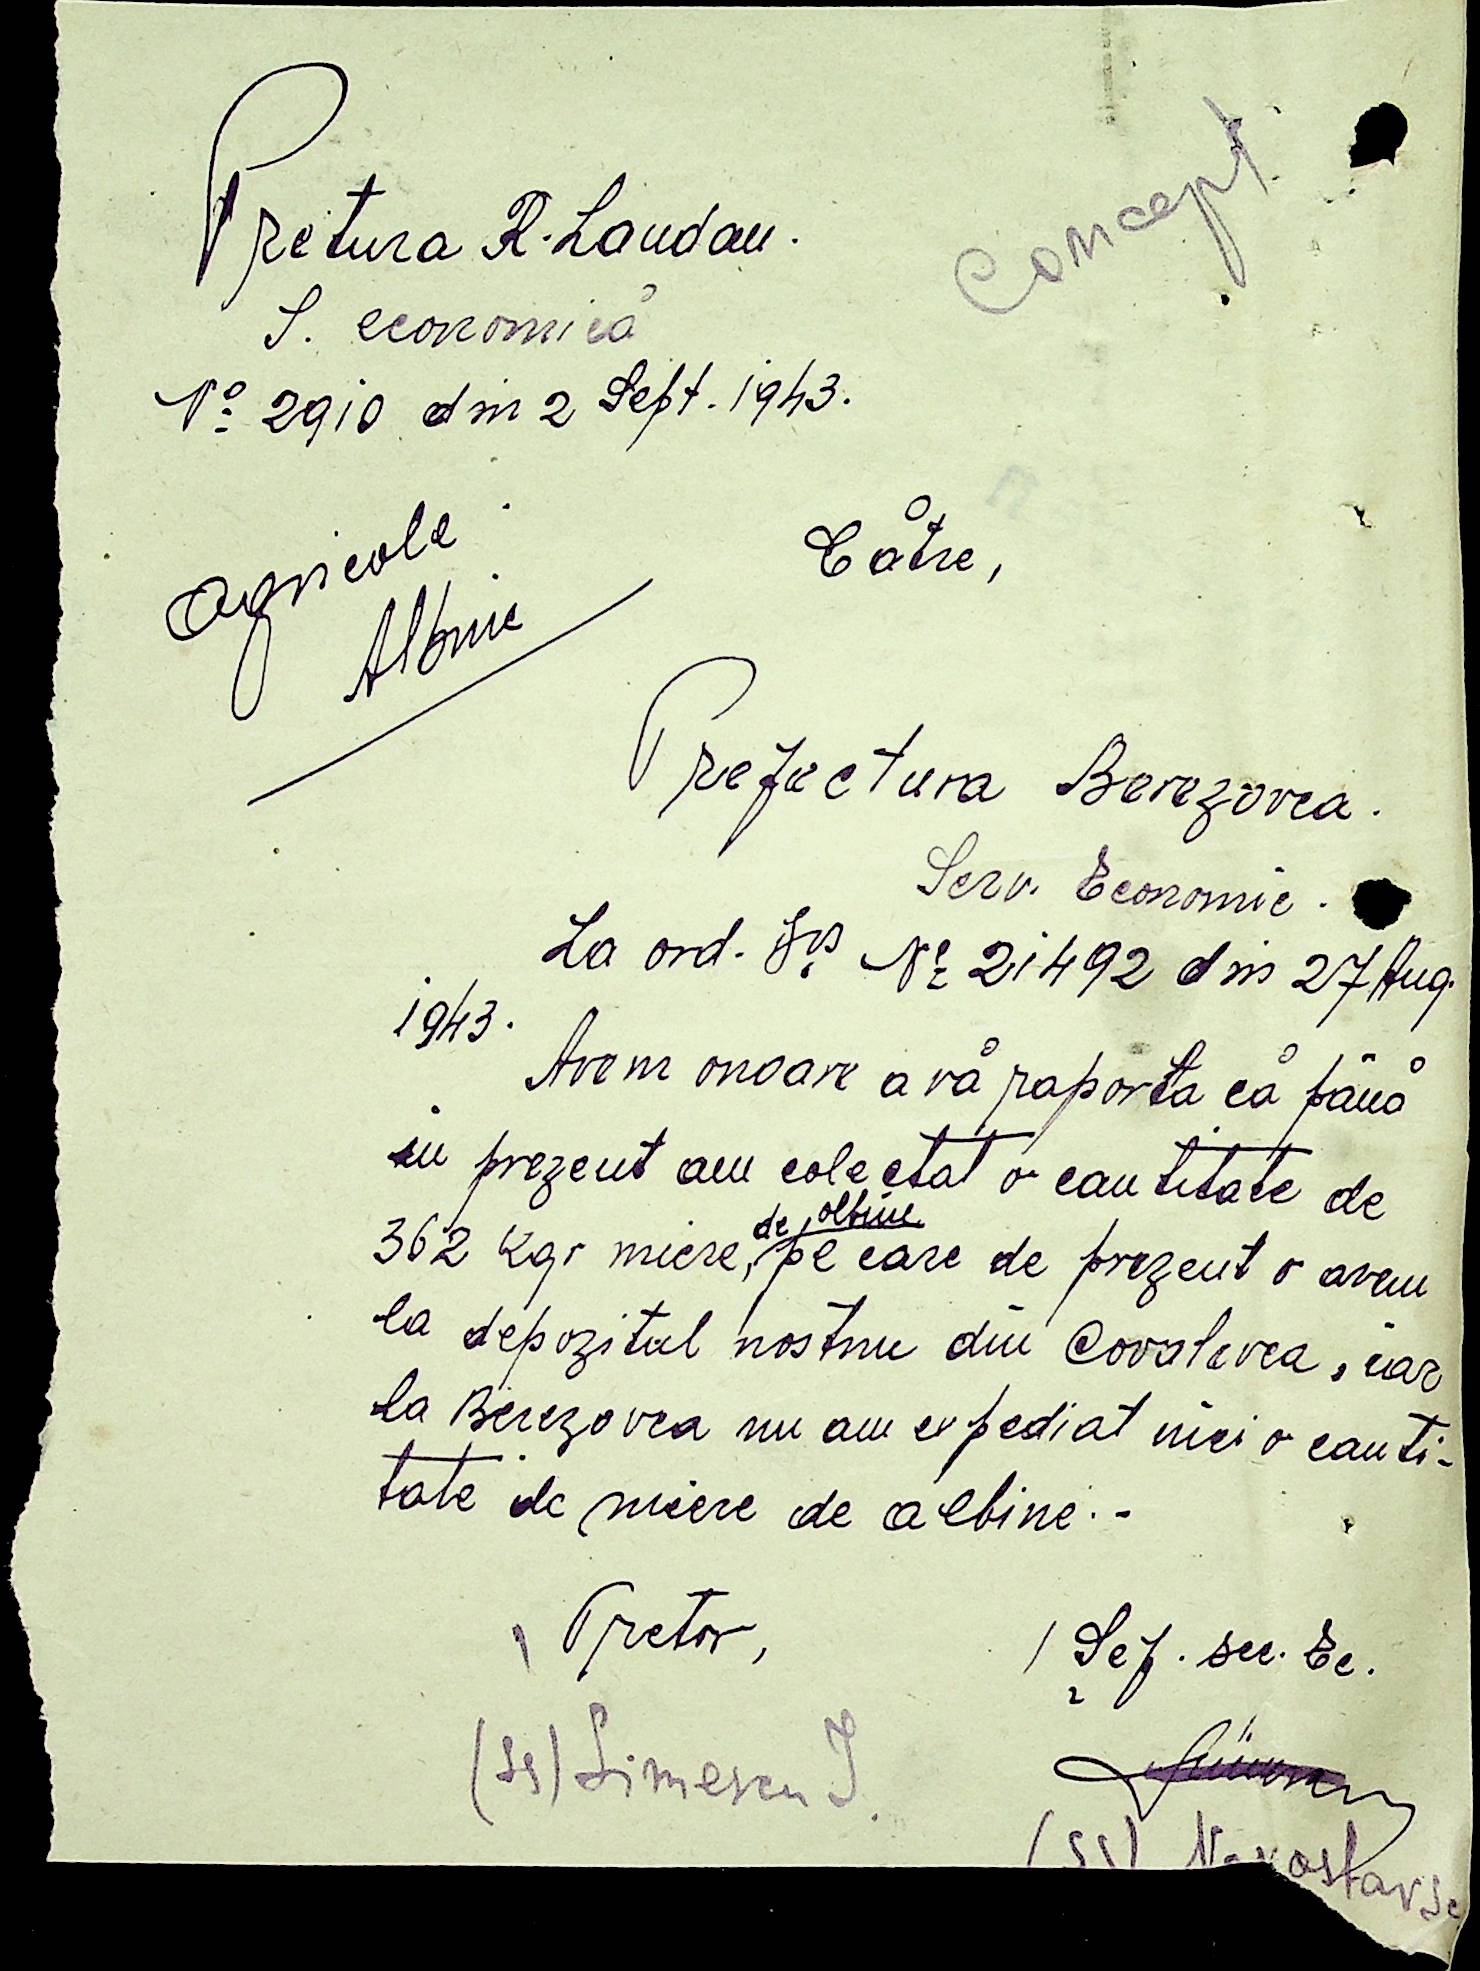 Concept
Pretura R. Landau.
S. economică
No 2910 din 2 Sept. 1943.
Agricole
Albine
Către,
Prefectura Berezovca.
Serv. Economic.
La ord. Dvs No 21492 din 27 Aug.
1943.
Avem onoare a vă raporta că până
în prezent am colectat o cantitate de
de albine
362 Kgr miere, pe care de prezent o avem
la depozitul nostru din Covalevca, iar
la Berezovca nu am expediat nici o canti-
tate de miere de albine.-
Pretor,
Șef. sec. Ec.
(ss) Simescu I.
(ss)